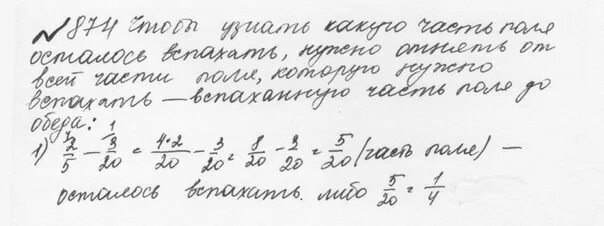 № 874 Чтобы узнать какую часть поля
осталось вспахать, нужно отнять от
всей части поля, которую нужно
вспахать — вспаханную часть поля до
обеда:
1) 2/5 - 3/20 = 4*2/20 - 3/20 = 8/20 - 3/20 = 5/20 (часть поля) —
осталось вспахать. либо 5/20 = 1/4